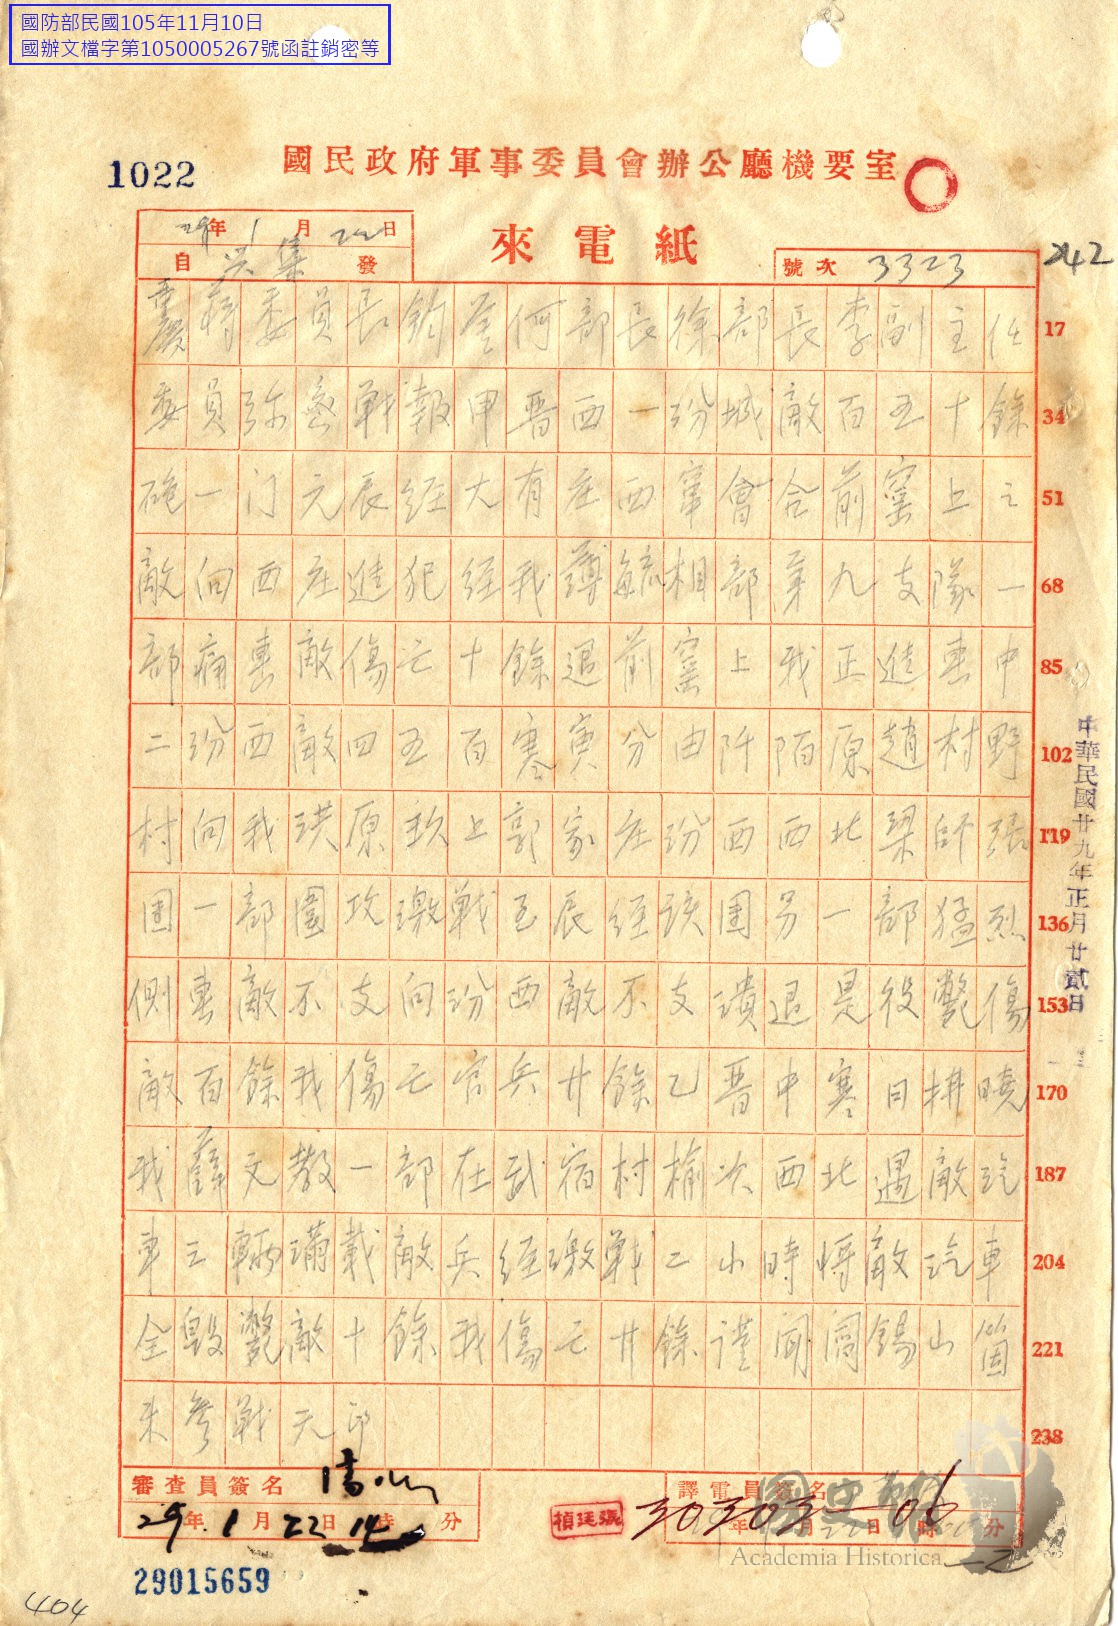 國防部民國105年11月10日
國辦文檔字第1050005267號函註銷密等
1022
國民政府軍事委員會辦公廳機要室
29年1月22日
自 兴集 發
來電紙
號次 3323
242
重慶蔣委員長鈞鑒何部長徐部長李副主任 17
委員弥密戰報甲晋西一汾城敵百五十餘 34
砲一门元辰經大有庄西窜會合前窰上之 51
敵向西庄進犯經我薄毓相部第九支隊一 68
部痛擊敵傷亡十餘退前窰上我正進擊中 85
二汾西敵四五百寒寅分由阡陌原趙村野 102
村向我洪原欤上郭家庄汾西西北梁師張 119
團一部圍攻激戰至辰經该團另一部猛烈 136
側擊敵不支向汾西敵不支潰退是役斃傷 153
敵百餘我傷亡官兵廿餘乙晋中寒日拂曉 170
我薛文教一部在武宿村榆次西北遇敵汽 187
車三輛滿載敵兵經激戰二小時将敵汽車 204
全毁斃敵十餘我傷亡廿餘謹聞閻錫山 221
未參戰元印 238
中華民國廿九年正月廿貳日
審查員簽名
29年1月22日14時 分
譯電員簽名
年 月22日 時 分
30303—06
—2
國史館
Academia Historica
29015659
404